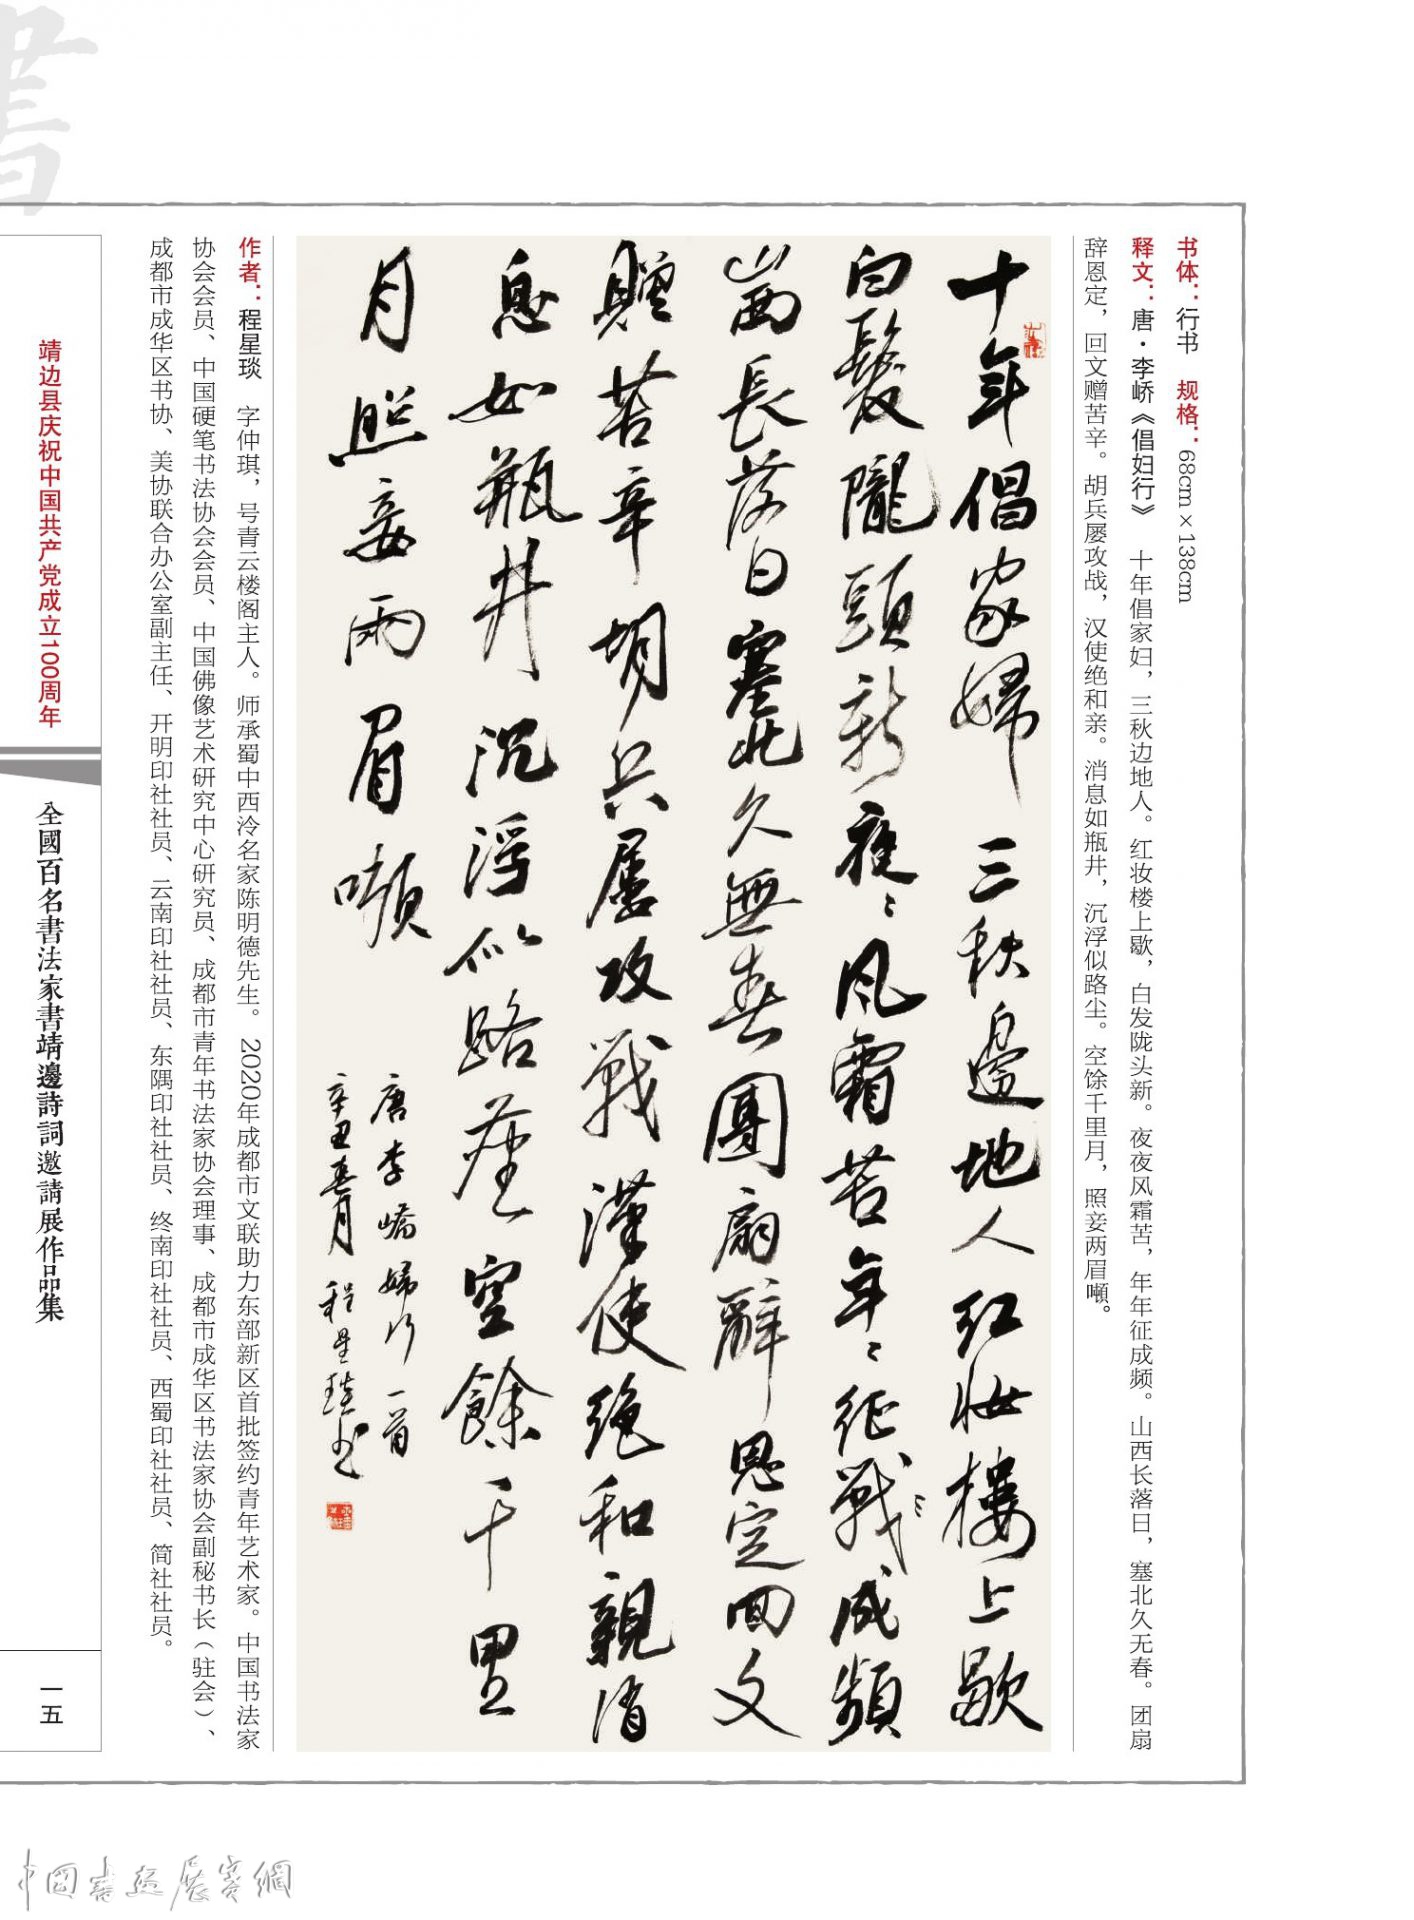 書
书体：行书　规格：68cm×138cm
释文：唐·李峤《倡妇行》　十年倡家妇，三秋边地人。红妆楼上歇，白发陇头新。夜夜风霜苦，年年征戍频。山西长落日，塞北久无春。团扇
辞恩定，回文赠苦辛。胡兵屡攻战，汉使绝和亲。消息如瓶井，沉浮似路尘。空馀千里月，照妾两眉嚬。
十年倡家婦三秋邊地人红妆樓上歇
白髮隴頭新夜〻風霜苦年〻征戰〻戍頻
山西長落日塞北久無春團扇辭恩定回文
贈苦辛胡兵屢攻戰漢使絕和親消
息如瓶井沉浮似路塵空餘千里
月照妾兩眉嚬
唐李嶠婦行一首
辛丑春月程星琰书
作者：程星琰　字仲琪，号青云楼阁主人。师承蜀中西泠名家陈明德先生。2020年成都市文联助力东部新区首批签约青年艺术家。中国书法家
协会会员、中国硬笔书法协会会员、中国佛像艺术研究中心研究员、成都市青年书法家协会理事、成都市成华区书法家协会副秘书长（驻会）、
成都市成华区书协、美协联合办公室副主任、开明印社社员、云南印社社员、东隅印社社员、终南印社社员、西蜀印社社员、简社社员。
靖边县庆祝中国共产党成立100周年
全國百名書法家書靖邊詩詞邀請展作品集
一五
中國書畫展賽網